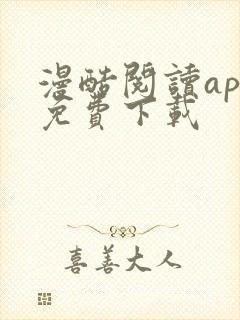 漫酷閱讀ap
免費下載
喜善大人